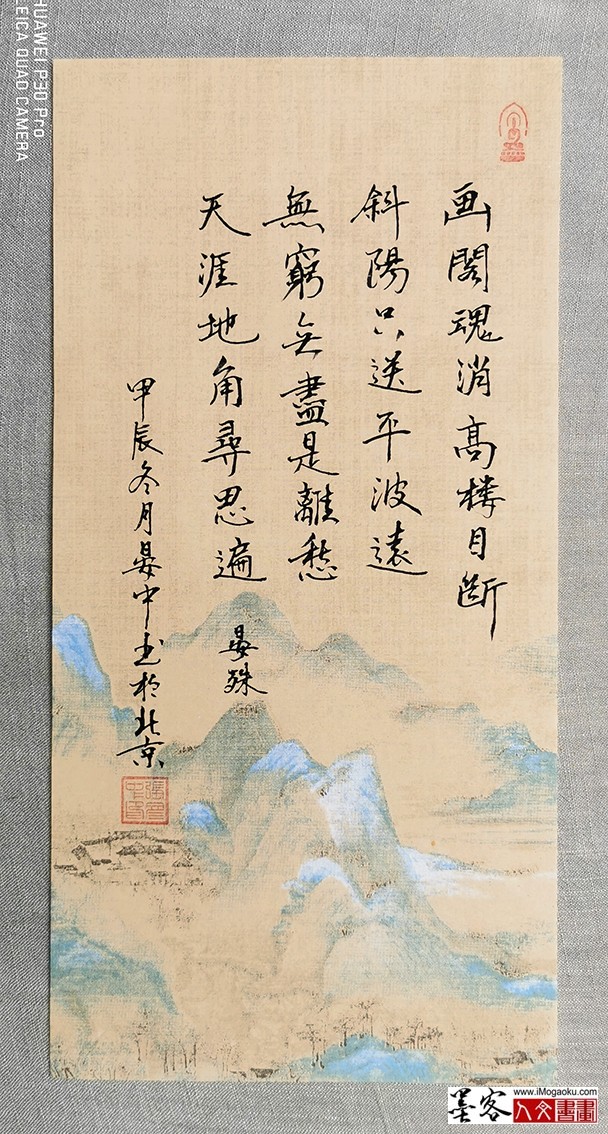 画閣魂消高楼目断
斜陽只送平波遠
無窮无盡是離愁
天涯地角尋思遍
晏殊
甲辰冬月晏中书於北京
HUAWEI P30 Pro
LEICA QUAD CAMERA
墨客
www.iMogaoku.com
人文書畫